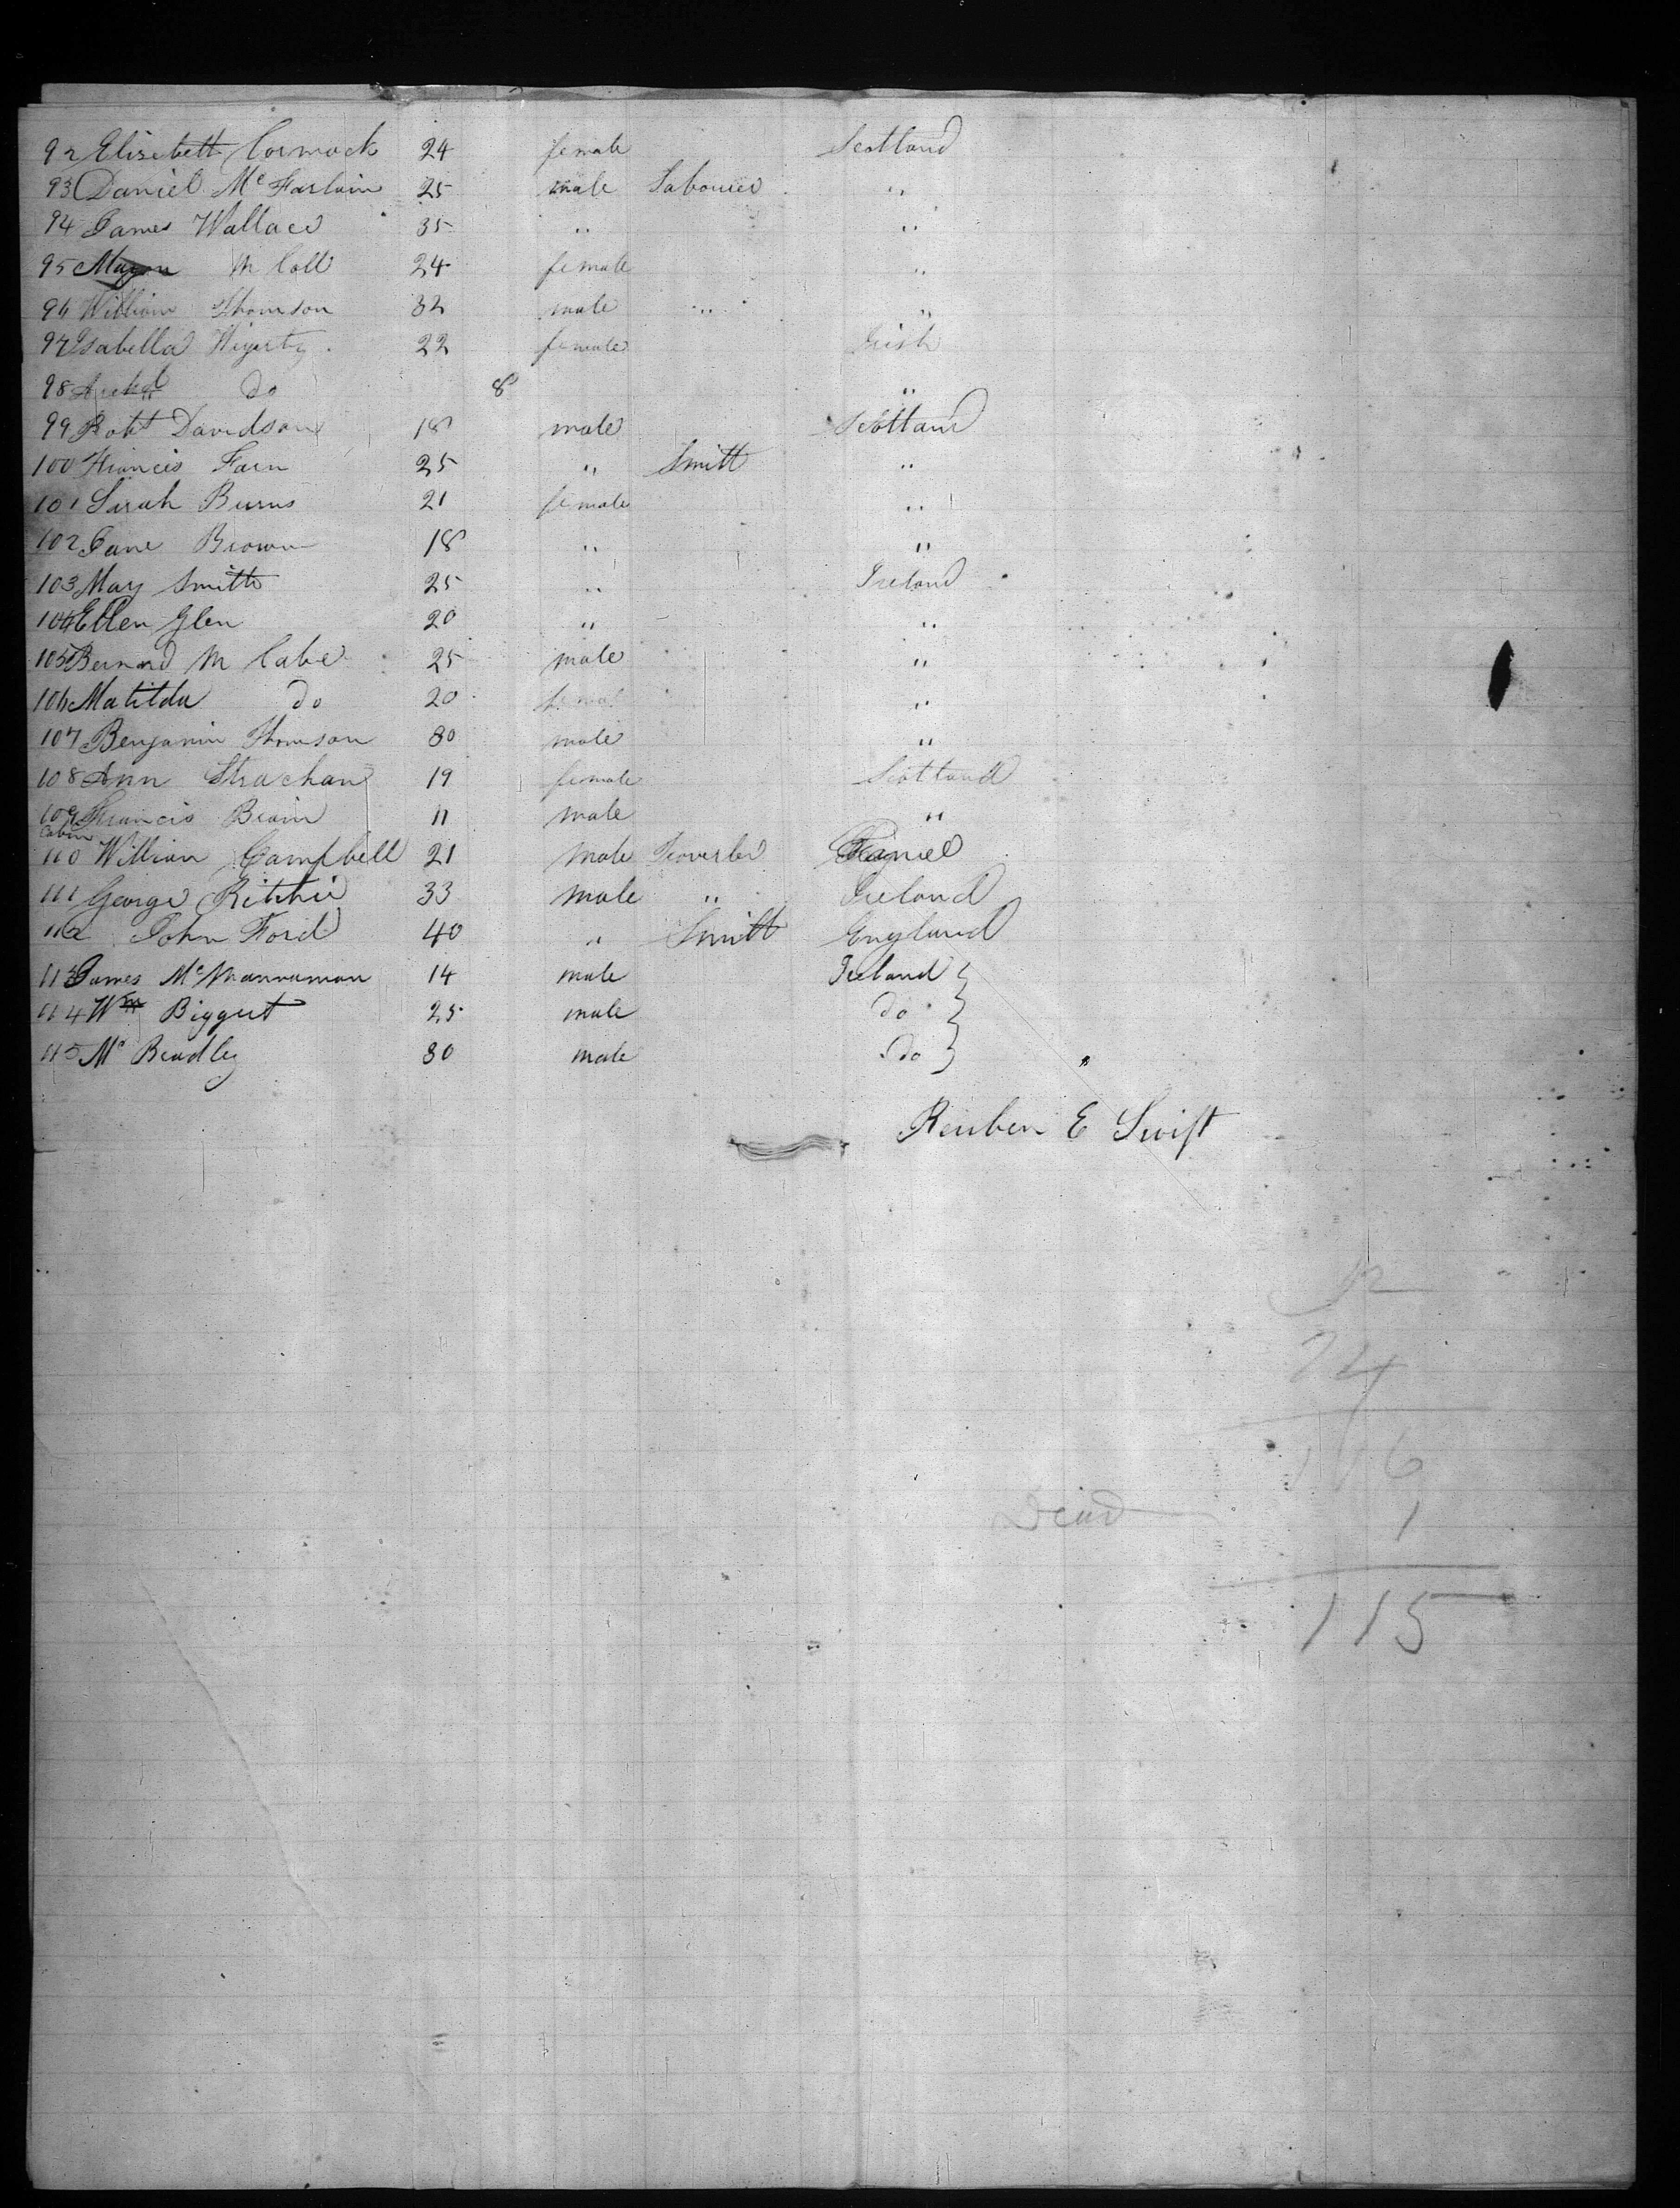 92 Elisebett Cormack 24 female Scotland
93 Daniel Mc Farlain 25 male Labourer "
94 James Wallace 35 " "
95 M Coll 24 female "
96 William Thomson 32 male " "
97 Isabella Hegerty 22 female Irish
98 Archd do 8 "
99 Robt Davidson 18 male Scotland
100 Francis Farn 25 " Smitt "
101 Sarah Burns 21 female "
102 Jane Brown 18 " "
103 Mary Smith 25 " Ireland
104 Ellen Glen 20 " "
105 Bernard M Cabe 25 male "
106 Matilda do 20 femal "
107 Benjamin Thomson 30 male "
108 Ann Strachan 19 female Scotland
109 Francis Brain 11 male "
Cabin
110 William Campbell 21 male
111 George Ritchie 33 male " Ireland
112 John Ford 40 " Smitt England
113 James McMannaman 14 male Ireland
114 Wm Biggert 25 male do
115 Mc Bradley 30 male do
Reuben E Swift
74
Dead 1
115